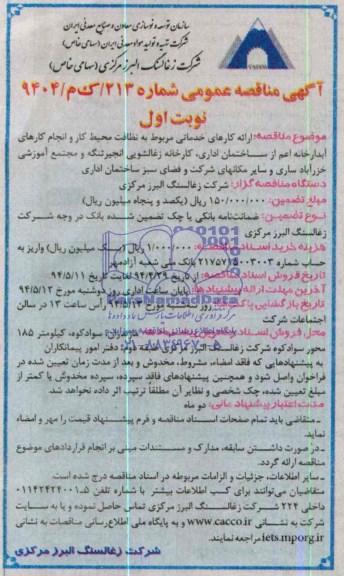 سازمان توسعه و نوسازی معادن و صنایع معدنی ایران
شرکت تهیه و تولید مواد معدنی ایران (سهامی خاص)
شرکت زغالسنگ البرز مرکزی (سهامی خاص)
آگهی مناقصه عمومی شماره ۲۱۳/ک م/۹۴۰۴
نوبت اول
موضوع مناقصه: ارائه کارهای خدماتی مربوط به نظافت محیط کار و انجام کارهای
آبدارخانه اعم از ساختمان اداری، کارخانه زغالشویی انجیرتنگه و مجتمع آموزشی
خزرآباد ساری و سایر مکانهای شرکت و فضای سبز ساختمان اداری
دستگاه مناقصه گزار: شرکت زغالسنگ البرز مرکزی
مبلغ تضمین: ۱۵۰/۰۰۰/۰۰۰ ریال (یکصد و پنجاه میلیون ریال)
نوع تضمین: ضمانت‌نامه بانکی یا چک تضمین شده بانک در وجه شرکت
زغالسنگ البرز مرکزی
هزینه خرید اسناد مناقصه: ۱/۰۰۰/۰۰۰ ریال (یک میلیون ریال) واریز به
حساب شماره ۲۱۷۵۷۱۵۰۰۳۰۰۳ بانک ملی شعبه آزادمهر
تاریخ فروش اسناد مناقصه: از تاریخ ۹۴/۴/۲۹ لغایت تاریخ ۹۴/۵/۱۱
آخرین مهلت ارائه پیشنهادها: پایان ساعت اداری روز دوشنبه مورخ ۹۴/۵/۱۲
تاریخ بازگشایی پاکت‌ها: روز مورخ ۹۴/۵/۱۳ رأس ساعت ۱۳ در سالن
اجتماعات شرکت
محل فروش اسناد سوادکوه، کیلومتر ۱۸۵
محور سوادکوه شرکت زغالسنگ البرز مرکزی طبقه دوم، دفتر امور پیمانکاران
به پیشنهادهایی که فاقد امضاء، مشروط، مخدوش و بعد از مدت زمان تعیین شده در
فراخوان واصل شود و همچنین پیشنهادهای فاقد سپرده، سپرده مخدوش یا کمتر از
مبلغ تعیین شده، چک شخصی و نظایر آن مطلقاً ترتیب اثر داده نخواهد شد.
مدت اعتبار پیشنهاد مالی: دو ماه
ـ متقاضی باید تمام صفحات اسناد مناقصه و فرم پیشنهاد قیمت را مهر و امضاء
نماید.
ـ در صورت داشتن سابقه، مدارک و مستندات مبنی بر انجام قراردادهای موضوع
مناقصه ارائه گردد.
ـ سایر اطلاعات، جزئیات و الزامات مربوطه در اسناد مناقصه درج شده است.
متقاضیان می‌توانند برای کسب اطلاعات بیشتر با شماره تلفن ۵ـ۰۱۱۴۲۴۲۴۰۰۱
داخلی ۲۲۴ شرکت زغالسنگ البرز مرکزی تماس حاصل نموده و یا به سایت
شرکت به نشانی www.cacco.ir و به پایگاه ملی اطلاع‌رسانی مناقصات به نشانی
iets.mporg.ir مراجعه نمایند.
شرکت زغالسنگ البرز مرکزی